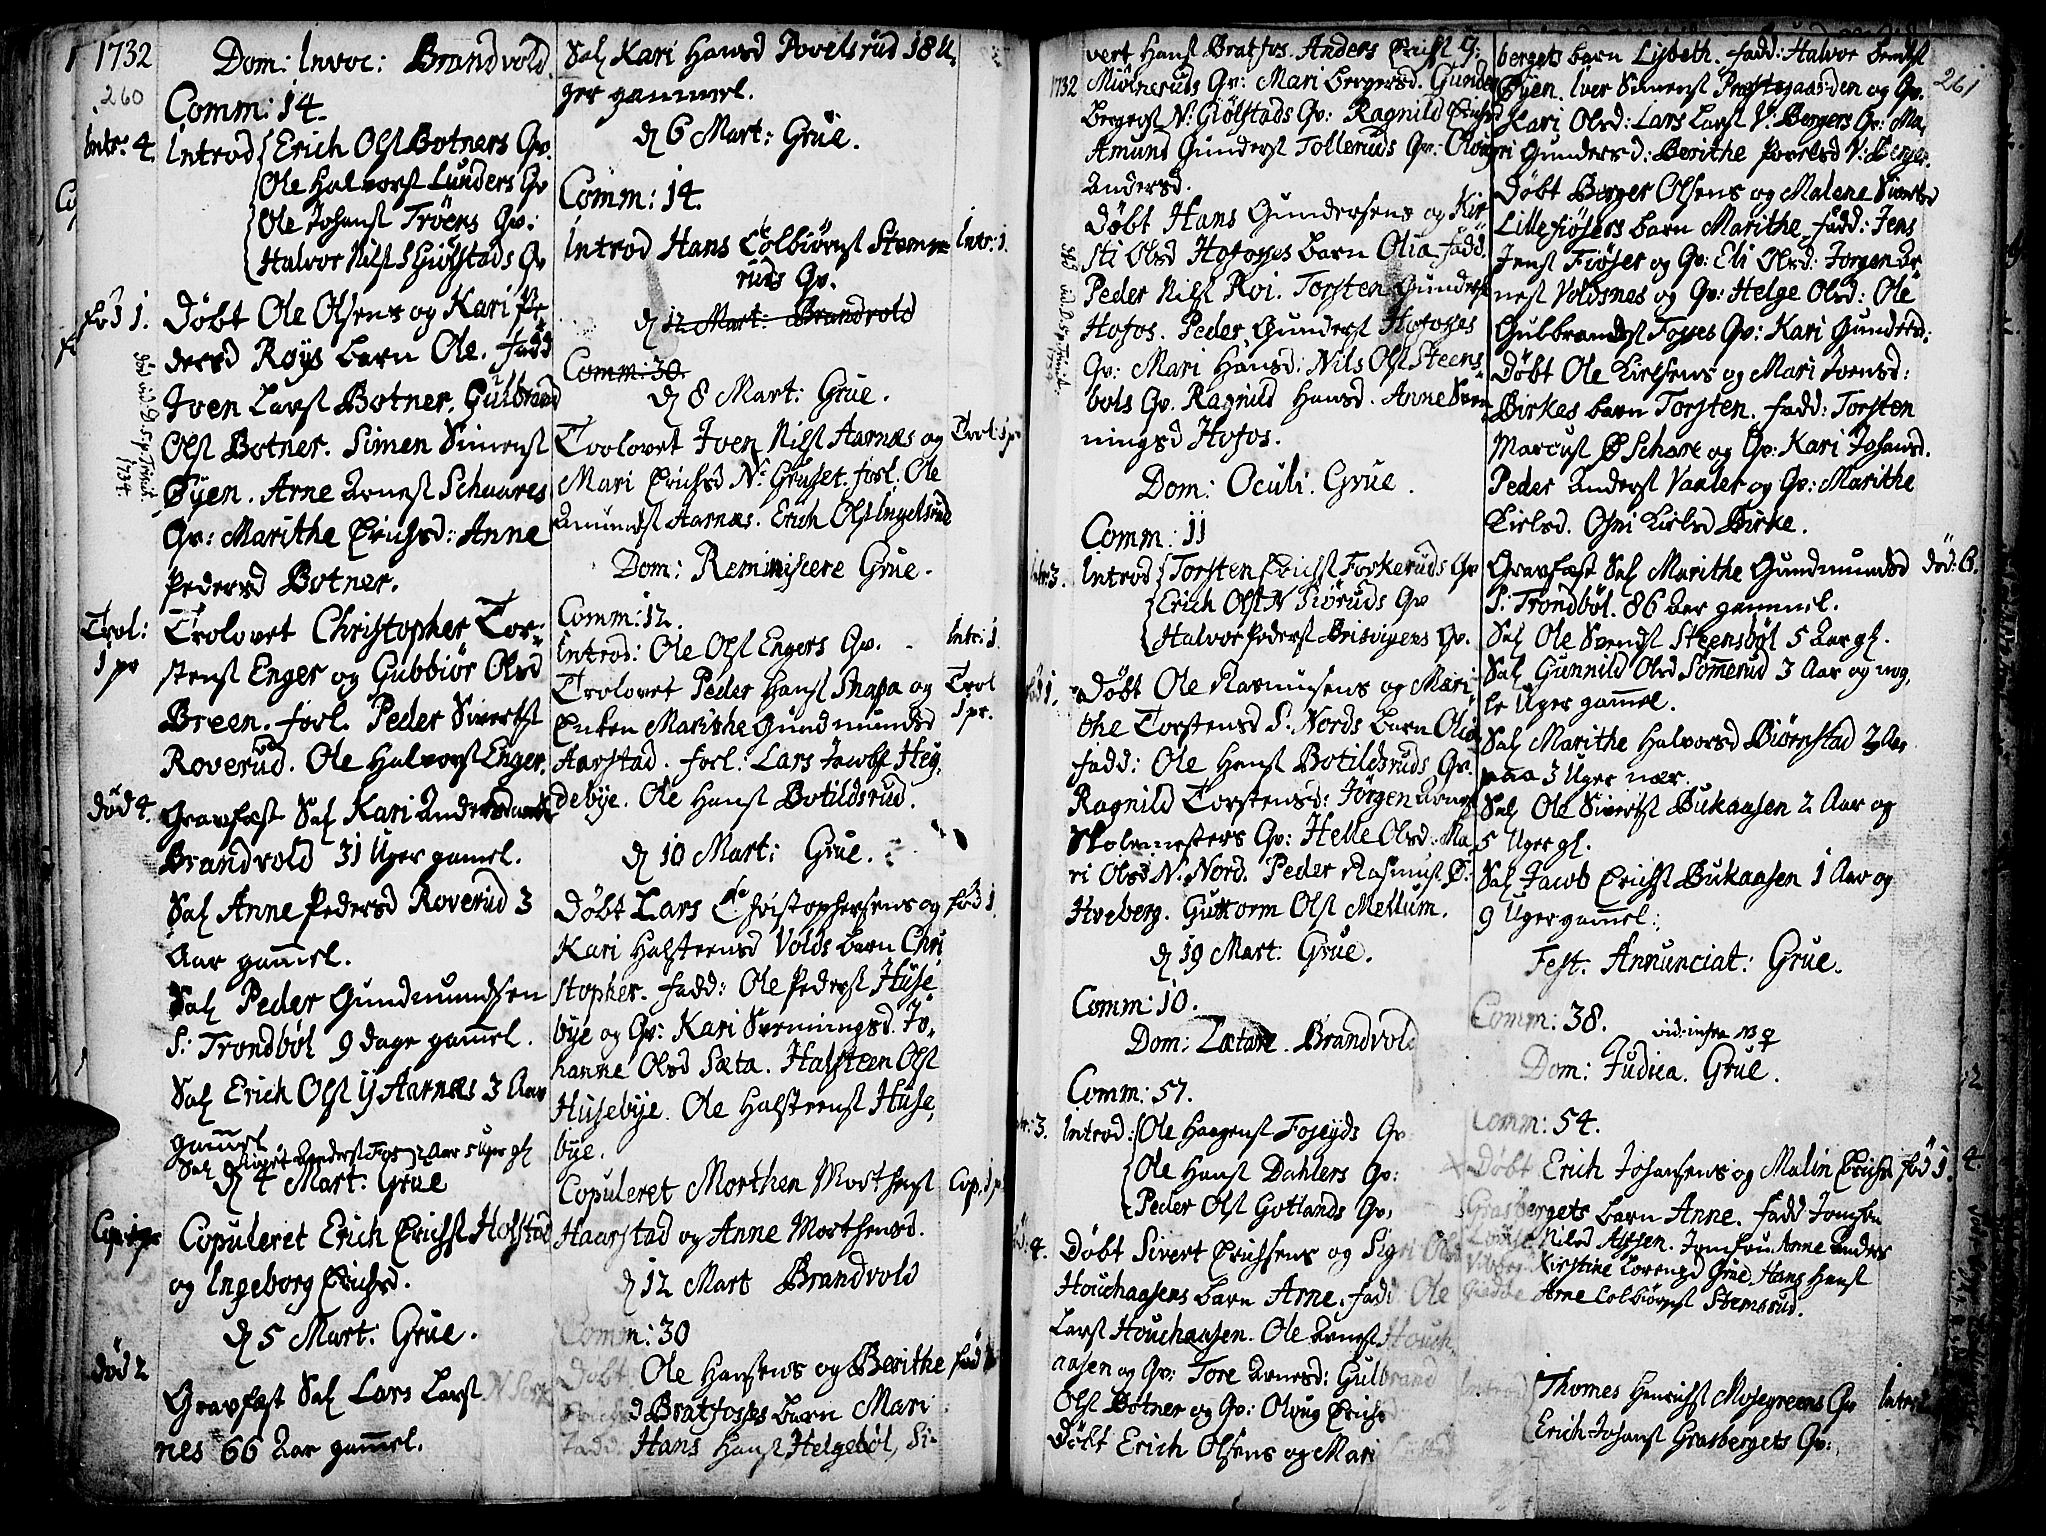 1732
260
Dom: Invoc: Brandvold.
Comm: 14.
Intr. 4. Introd Erich Ols Botners Qv.
Ole Halvors Lunders Qv
Ole Johans Tröens Qv:
Halvor Nils S Giölstads Qv
föd 1. Döbt Ole Olsens og Kari Pe
dersd Röys barn Ole. fadd
Iven Lars Botner. Gulbrand
Ols Botner. Simen Simens
Öyen. Arne Arnes Schaares
Qv: Marithe Erichsd: Anne
Pedersd Botner.
1734.
Trol: 1 pr Trolovet Christopher Tor-
stens Enger og Gubbiör Olsd
Breen. forl. Peder Siverts
Roverud. Ole Halvors Enger.
död 4. Gravfæst Sal Kari Anders
Brandvold 31 Uger gamel.
Sal Anne Pedersd Roverud 3
Aar gamel.
Sal Peder Gundmundsen
S: Trondböl 9 dage gamel.
Sal Erich Ols Y Aarnæs 3 Aar
gamel
Sal Sivert Anders Fos 2 Aar 5 Uger gl
D 4 Mart: Grue
Cop. 1 pr Copuleret Erich Erichs Hofstad
og Ingeborg Erichsd.
D 5 Mart: Grue.
död 2
Gravfæst Sal Lars Lars
nes 66 Aar gamel.
Sal Kari Hansd Povelsrud 18 U,
ger gammel.
D 6 Mart: Grue.
Comm: 14.
Introd Hans Colbiörns Stemm Intr: 1.
ruds Qv.
D 12 Mart: Brandvold
Comm: 30.
D 8 Mart: Grue.
Trolovet Iven Nils Aarnæs og Trol: 1 pr
Mari Erichsd N: Grusset. forl. Ole
Amunds Aarnæs. Erich Ols Ingelsrud
Dom: Reminiscere Grue.
Comm: 12.
Introd: Ole Ols Engers Qv. Intr: 1
Trolovet Peder Hans Skasa og Trol
Enken Marithe Gundmundsd 1 pr.
Aarstad. forl: Lars Jacobs Hey,
debye. Ole Hans Botildsrud.
D 10 Mart: Grue.
Döbt Lars Christophersens og föd 1.
Kari Halsteensd Volds barn Chri
stopher. fadd: Ole Peders Huse
bye og Qv: Kari Svenningsd. Jo,
hanne Olsd Sæta. Halsteen Ols
Husebye. Ole Halsteens Huse,
bye.
Copuleret Morthen Morthens Cop. 1 p
Haarstad og Anne Morthensd.
D 12 Mart Brandvold
Comm: 30
Döbt Ole Hansens og Berithe föd
d Bratfosses barn Mari
fadd. Hans Hans Helgeböl, Si-
vert Hans Bratfos. Anders Erichs
1732 Mölneruds Qv: Mari Bergersd. Gunder
Bergers N: Giölstads Qv: Ragnild Erichsd
Amund Gunders Tollenuds Qv: Olou
Andersd.
Döbt Hans Gundersens og Kir
sti Olsd Hofosses barn Olia fadd.
Peder Nils Roi. Torsten Gunders
Hofos. Peder Gunders Hofosses
Qv: Mari Hansd: Nils Ols Steens
bols Qv. Ragnild Hansd. Anne Sven
ningsd Hofos.
Dom: Oculi. Grue.
Comm: 11
Intr: 3. Introd Torsten Erichs Forkeruds Qv
Erich Ols N Siöruds Qv
Halvor Peders Brisvigens Qv.
föd 1. Döbt Ole Rasmusens og Mari
the Torstensd S: Nords barn Olia
fadd: Ole Hans Botildsruds Qv.
Ragnild Torstensd: Jörgen Arnes
Skolemesters Qv: Helle Olsd: Ma
ri Olsd N: Nord. Peder Rasmus
Hveberg. Guttorm Ols Mellum.
D 19 Mart: Grue.
Comm: 10.
Dom: Lætare. Brandvold
Comm: 57.
Intr: 3. Introd: Ole Haagens Foseyds Qv
Ole Hans Dahlers Qv:
Peder Ols Gotlands Qv,
4. Döbt Sivert Erichsens og Sigri Olsd
Houchaasens barn Arne. fadd Ole
Lars Houchaasen. Ole Arnes Houch
aasen og Qv: Tore Arnesd: Gulbrand
Ols Botner og Qv: Oloug Erichs
Döbt Erich Olsens og Mari
261
bergets barn Lisbeth. fadd: Halvor
Öyen. Iver Simens Præstegaarden og Qv.
Kari Olsd: Lars Lars V: Bergers Qv: Ma,
ri Gundersd: Berithe Povelsd V: Berger.
Döbt Berger Olsens og Malene Sivertsd
Lillefiösers barn Marithe. fadd: Jens
Jens Fiöser og Qv: Eli Olsd: Jorgen Ar
nes Voldsnes og Qv: Helge Olsd: Ole
Gulbrands Fosses Qv: Kari Gundersd.
Döbt Ole Kielsens og Mari Ivensd:
Birkes barn Torsten. fadd: Torsten
Marcus Ö Schare og Qv: Kari Johansd.
Peder Anders Vaaler og Qv: Marithe
Kielsd. Osni Kielsd Birke.
Gravfæst Sal Marithe Gundmundsd död: 6.
S: Trondböl. 86 Aar gammel.
Sal Ole Svends Steensböl 5 Aar gl.
Sal Gunnild Olsd Sömerud 3 Aar og nog
le Uger gamel.
Sal Marithe Halvorsd Biörnstad 2 Aar
paa 3 Uger nær.
Sal Ole Siverts Bukaasen 2 Aar og
5 Uger gl.
Sal Jacob Erichs Bukaasen 1 Aar og
9 Uger gamel:
Fest. Annunciat: Grue.
Comm: 38.
vid: infra
Dom: Judica. Grue.
Comm: 54.
Döbt Erich Johansens og Malin Erichs föd 1.
Grasbergets barn Anne. fadd Jomfru
Nilsd Assen. Jomfru Anne Anders
Kirstine Lorensd Grue. Hans Hans
Arne Colbiörns Stemsrud.
Thomes Henrichs Mosegreens Qv Introd
Erich Johans Grasbergets Qv: